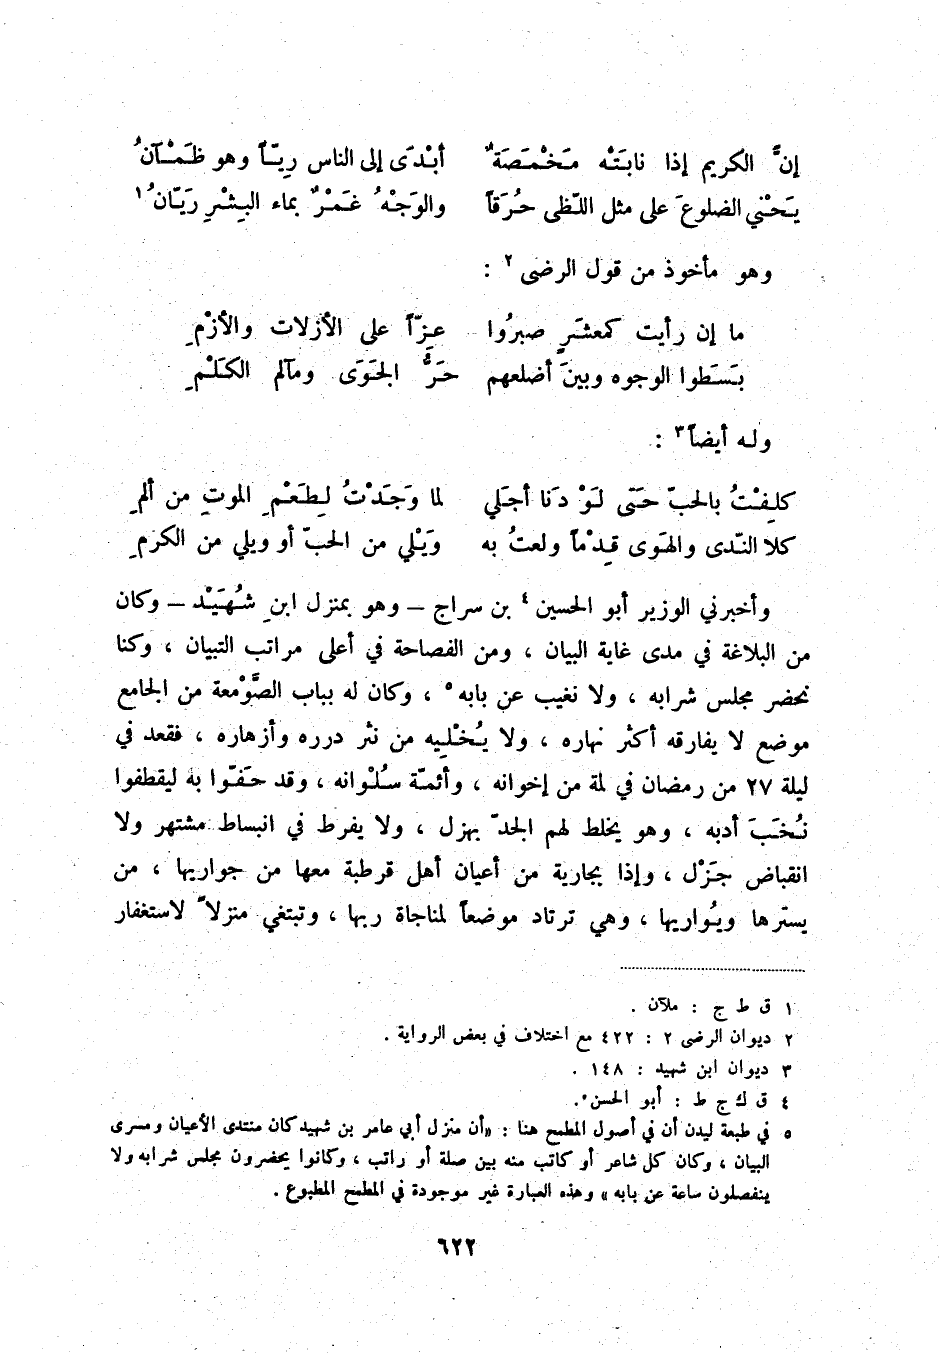 إنَّ الكريم إذا نابَتْه مَخْمَصَةٌ أبْدَى إلى الناس رِيّاً وهو ظَمْآنُ
يَحْني الضلوعَ على مثل اللّظى حُرَقاً والوَجْهُ غَمْرٌ بماء البِشْرِ رَيّانُ ١
وهو مأخوذ من قول الرضى ٢ :
ما إن رأيت كمعشَرٍ صبرُوا عِزّاً على الأزلات والأزْمِ
بَسَطوا الوجوه وبينَ أضلعهم حَرُّ الجَوَى ومآلم الكَلْمِ
وله أيضاً ٣ :
كلِفْتُ بالحبّ حَتّى لَوْ دَنا أجَلي لما وَجَدْتُ لِطَعْمِ الموتِ من ألمِ
كلا النّدى والهَوَى قِدْماً ولعتُ به وَيْلي من الحبّ أو ويلي من الكرمِ
وأخبرني الوزير أبو الحسين ٤ بن سراج – وهو بمنزل ابنِ شُهَيْد – وكان
من البلاغة في مدى غاية البيان ، ومن الفصاحة في أعلى مراتب التبيان ، وكنا
نحضر مجلس شرابه ، ولا نغيب عن بابه ٥ ، وكان له بباب الصَّوْمعة من الجامع
موضع لا يفارقه أكثر نهاره ، ولا يُخْلِيه من نثر درره وأزهاره ، فقعد في
ليلة ٢٧ من رمضان في لمة من إخوانه ، وأئمّة سُلْوانه ، وقد حَفّوا به ليقطفوا
نُخَبَ أدبه ، وهو يخلط لهم الجدّ بهزل ، ولا يفرط في انبساط مشتهر ولا
انقباض جَزْل ، وإذا بجارية من أعيان أهل قرطبة معها من جواريها ، من
يسترها ويُواريها ، وهي ترتاد موضعاً لمناجاة ربها ، وتبتغي منزلاً لاستغفار
١ ق ط ج : ملآن .
٢ ديوان الرضى ٢ : ٤٢٢ مع اختلاف في بعض الرواية .
٣ ديوان ابن شهيد : ١٤٨ .
٤ ق ك ج ط : أبو الحسن .
٥ في طبعة ليدن أن في أصول المطمح هنا : «أن منزل أبي عامر بن شهيد كان منتدى الأعيان ومسرى
البيان ، وكان كل شاعر أو كاتب منه بين صلة أو راتب ، وكانوا يحضرون مجلس شرابه ولا
ينفصلون ساعة عن بابه» وهذه العبارة غير موجودة في المطمح المطبوع .
٦٢٢